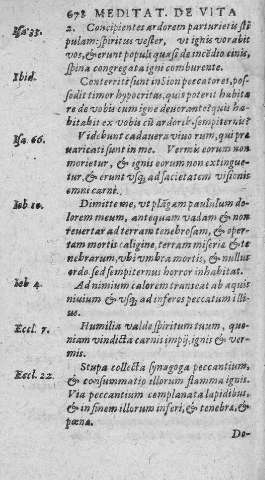 678 MEDITAT. DE VITA
Isa. 33. 2. Concipientes ardorem parturietis sti
pulam: spiritus vester, vt ignis vorabit
vos, & erunt populi quasi de incēdio cinis,
spina congregata igni comburente.
Ibid. Conterriti sunt in Sion peccatores, pos-
sedit timor hypocritas, quis poterit habita
re de vobis cum igne deuorante? quis ha-
bitabit ex vobis cū ardorib. sempiternis?
Isa. 66. Videbunt cadauera viuorum, qui præ
uaricati sunt in me. Vermis eorum non
morietur, & ignis eorum non extingue-
tur, & erunt vsq. ad societatem visionis
omni carni.
Iob 10. Dimitte me, vt plāgam paululum do-
lorem meum, antequam vadam & non
reuertar ad terram tenebrosam, & oper-
tam mortis caligine, terram miseriæ & te
nebrarum, vbi vmbra mortis, & nullus
ordo, sed sempiternus horror inhabitat.
Iob 4. Ad nimium calorem transeat ab aquis
niuium & vsq. ad inferos peccatum illi-
us.
Eccl. 7. Humilia valde spiritum tuum, quo-
niam vindicta carnis impij, ignis & ver-
mis.
Eccl. 22. Stupa collecta synagoga peccantium,
& consummatio illorum flamma ignis.
Via peccantium complanata lapidibus,
& in finem illorum inferi, & tenebræ, &
pœna.
Do-